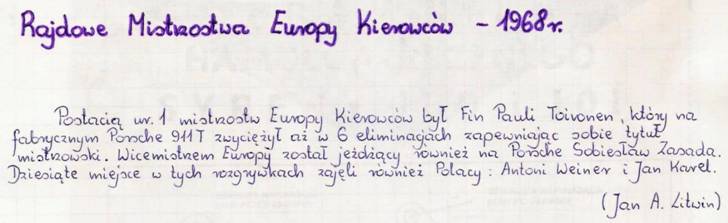 Rajdowe Mistrzostwa Europy Kierowców - 1968r.
Postacią nr. 1 mistrzostw Europy Kierowców był Fin Pauli Toivonen, który na
fabrycznym Porsche 911T zwyciężył aż w 6 eliminacjach zapewniając sobie tytuł
mistrzowski. Wicemistrzem Europy został jeżdżący również na Porsche Sobiesław Zasada.
Dziesiąte miejsce w tych rozgrywkach zajęli również Polacy: Antoni Weiner i Jan Karel.
(Jan A. Litwin)